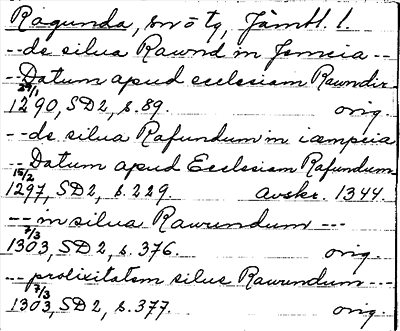 Ragunda, sn o tg, Jämtl. l.
-- de silua Rawnd in Jemcia --
-- Datum apud ecclesiam Raundir
29/1 1290, SD2, s. 89. orig.
-- de silua Rafundum in iæmpcia
-- Datum apud Ecclesiam Rafundum
15/2 1297, SD2, s. 229. avskr. 1344.
--- in silua Rawundum ---
7/3 1303, SD2, s. 376. orig.
--- prolixitatem silue Rawundum ---
7/3 1303, SD2, s. 377. orig.